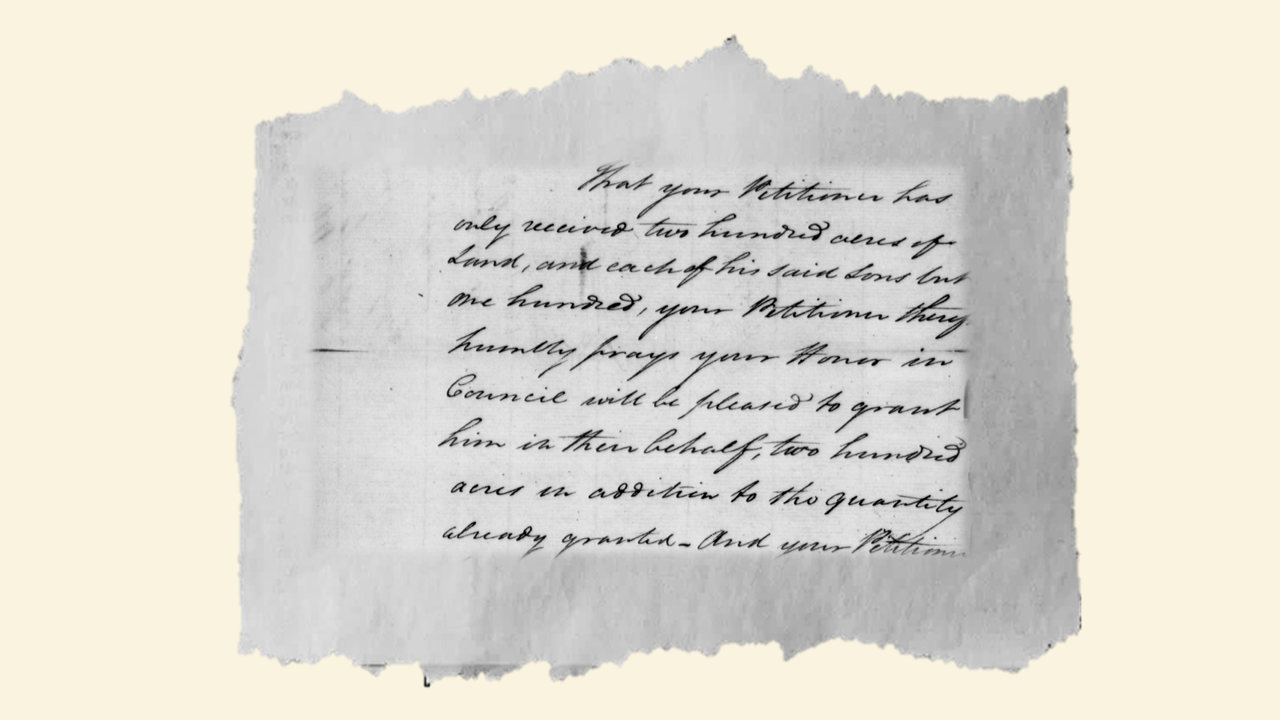 That your Petitioner has
only received two hundred acres of
Land, and each of his said Sons but
one hundred, your Petitioner theref
humbly prays your Honor in
Council will be pleased to grant
him in their behalf, two hundred
acres in addition to the quantity
already granted - And your Petitioner